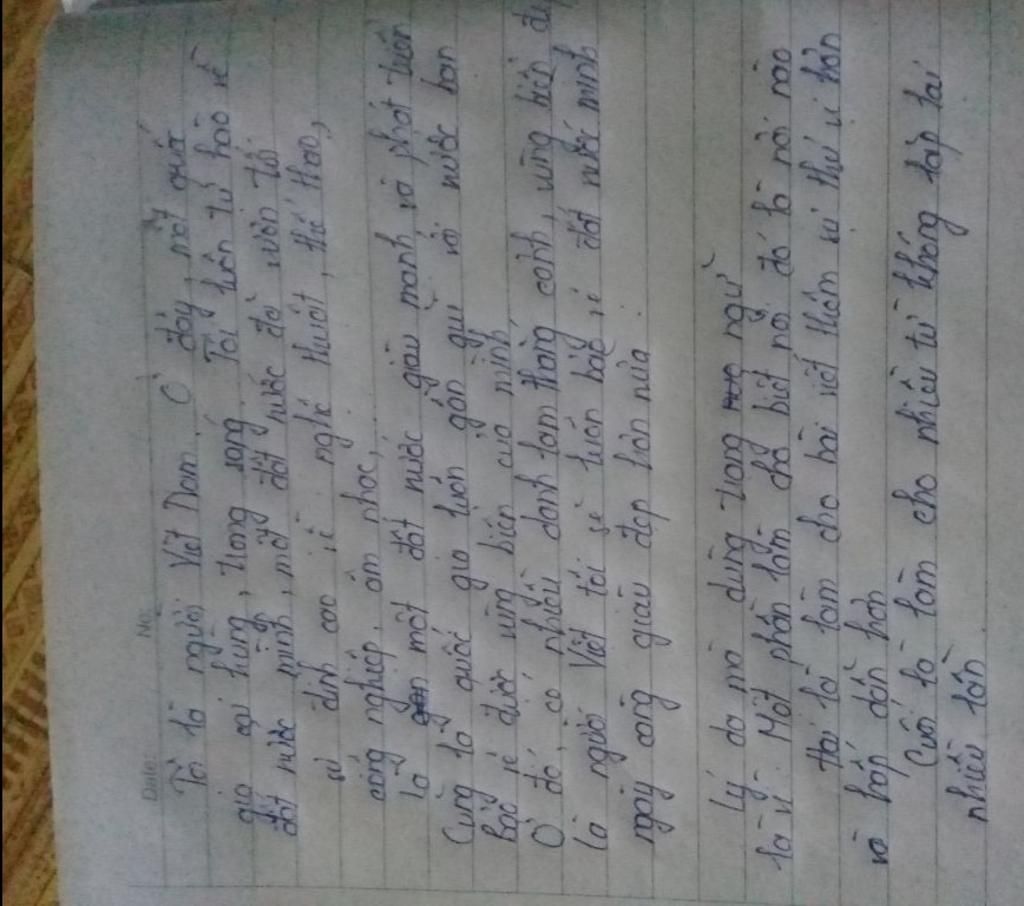 Date: No:
Tôi là người Việt Nam. Ở đây, một quốc
gia oai hùng, trong sáng. Tôi luôn tự hào về
đất nước mình, một đất nước đã vươn tới
đỉnh cao về nghệ thuật, thể thao,
công nghiệp, âm nhạc,
là một đất nước giàu mạnh và phát triển
Cũng là quốc gia luôn gần gũi với nước bạn
bảo vệ được vùng biển của mình
Ở đó, có nhiều danh lam thắng cảnh, vùng biển
là người Việt tôi sẽ luôn bảo vệ đất nước mình
ngày càng giàu đẹp hơn nữa
Lý do mà dùng trạng ngữ
là vì: Một phần làm cho biết nơi đó là nơi nào
Hai là làm cho bài viết thêm sự thú vị hơn
và hấp dẫn hơn
Cuối là làm cho nhiều từ không lặp lại
nhiều lần